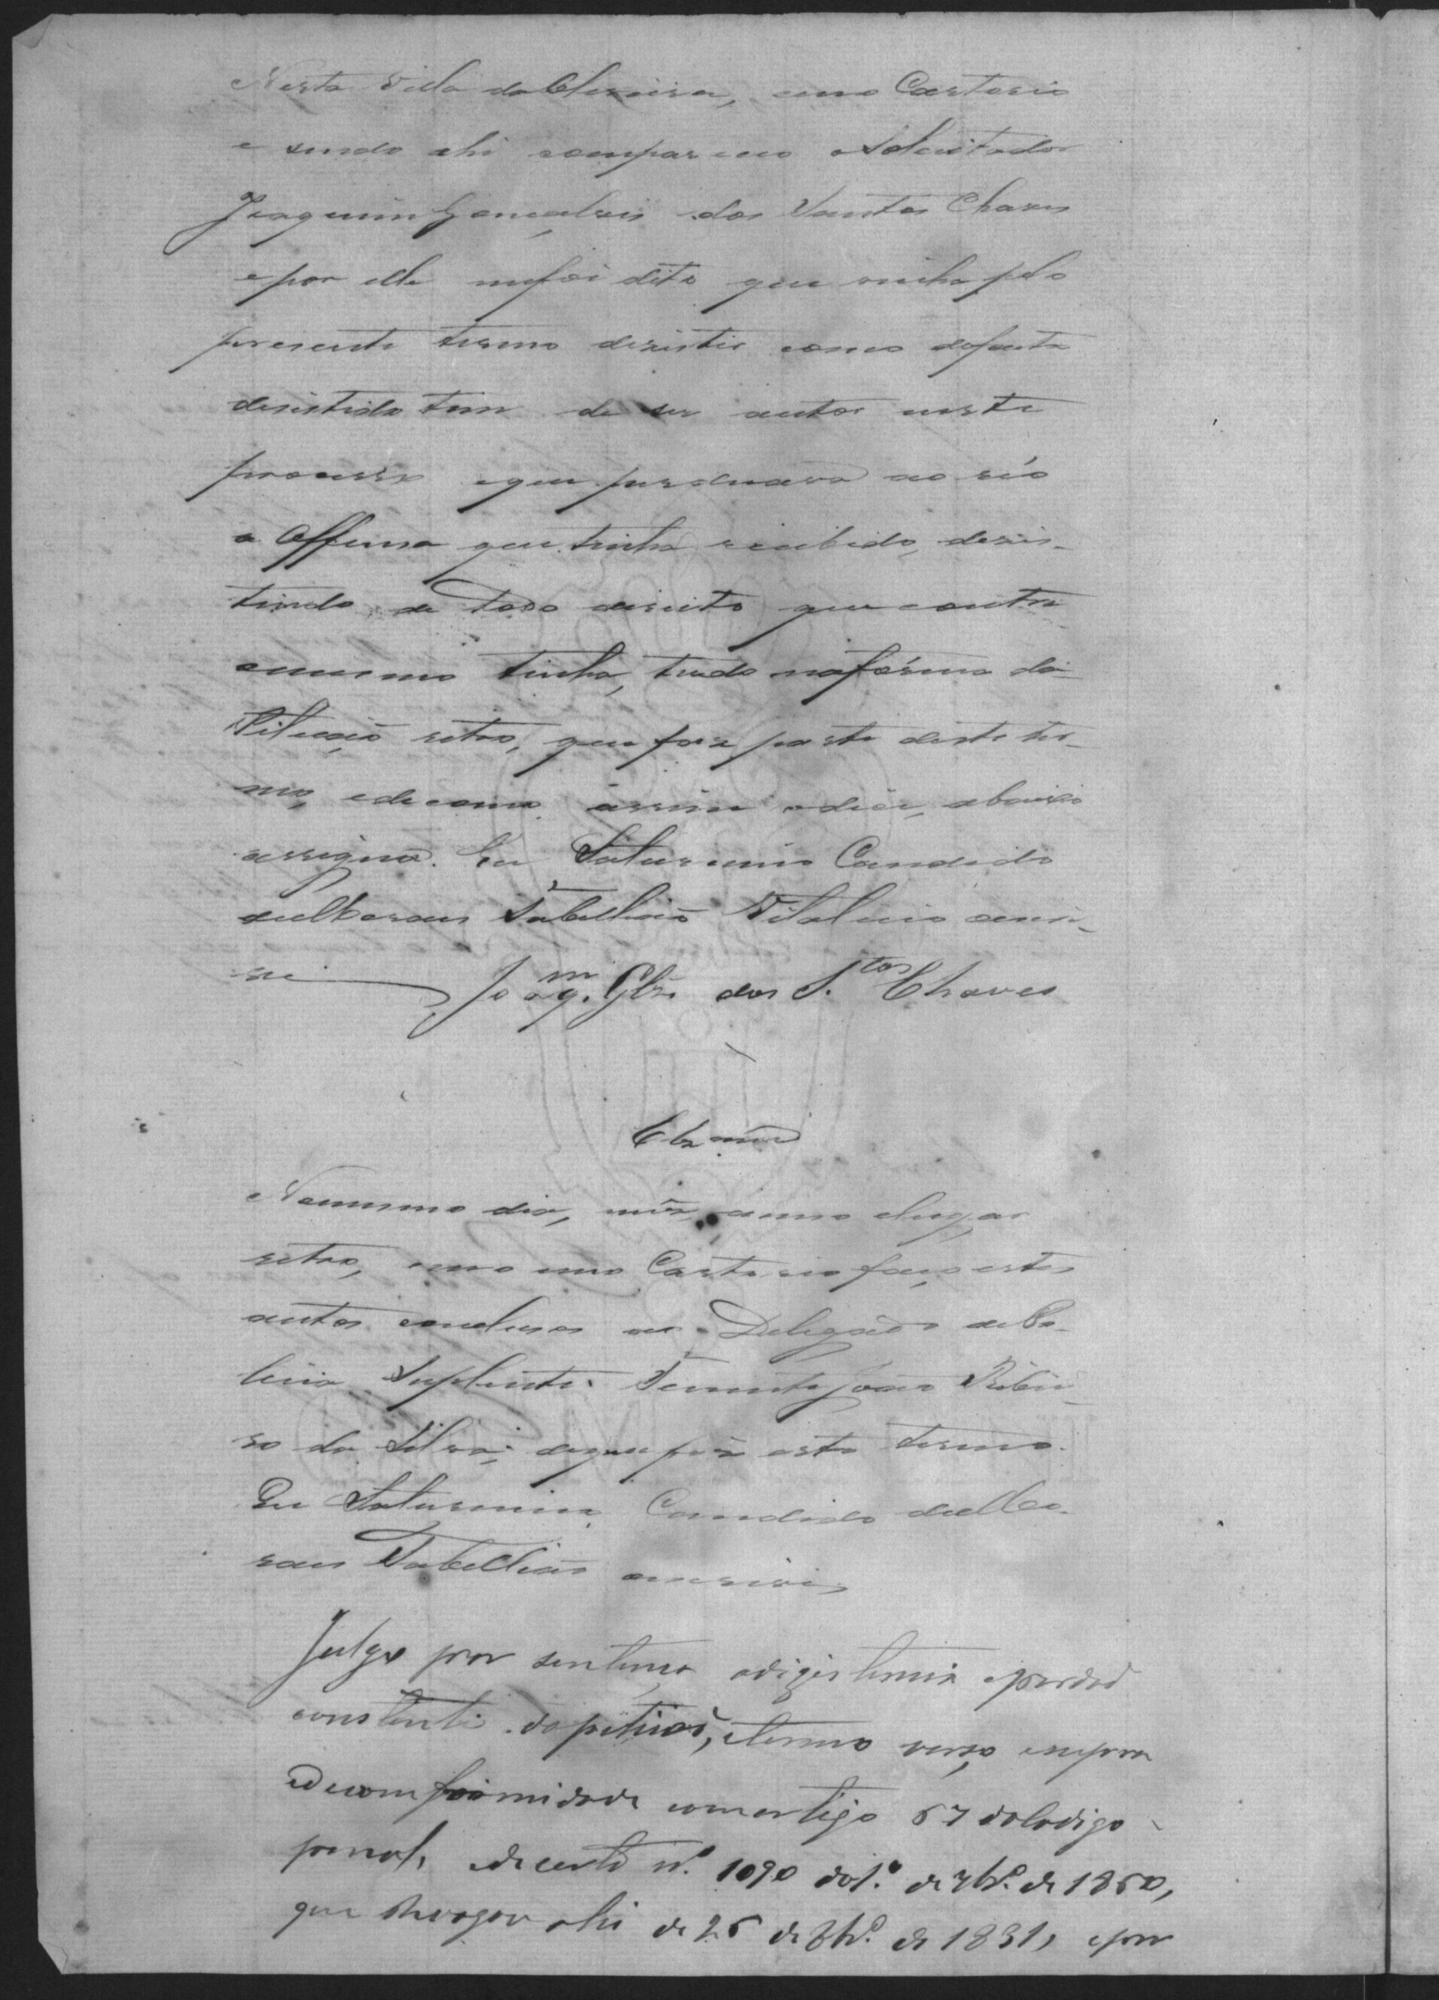 Nesta Villa da Oliveira, em o Cartorio
e sendo ahi compareceo o Solicitador
Joaquim Gonçalves dos Santos Chaves
e por elle mefoi dito que vinha pelo
presente termo desistir como defacto
desistido tem de ser autor neste
processo eque perduava ao réo
a offensa que tinha recebido, desis-
tindo de todo direito que contra
omesmo tinha, tudo naforma da
Petição retro, que faz parte deste ter-
mo, edecomo assim odice, abaixo
assigna. Eu Saturnino Candido
Tabellião Vitalicio oescri-
vi Joaqm. Glz. dos S.tos Chaves
Clzam
Nomesmo dia, mez, anno elugar
retro, em o meo Cartorio faço estes
autos conclusos ao Delegado de Po-
licia Suplente Tenente João Ribei-
ro da Silva; deque fiz este termo.
Eu Saturnino Candido
Tabellião oescrevi,
Julgo por sentença adizistencia eperdad
constante dapetição, etermo verso esupra
edecomformidade comartigo 67 doCodigo
penal, edecreto n.º 1090 do1.º de 7br.º de 1860,
que revogou alei de 26 de 8br.º de 1831, epor